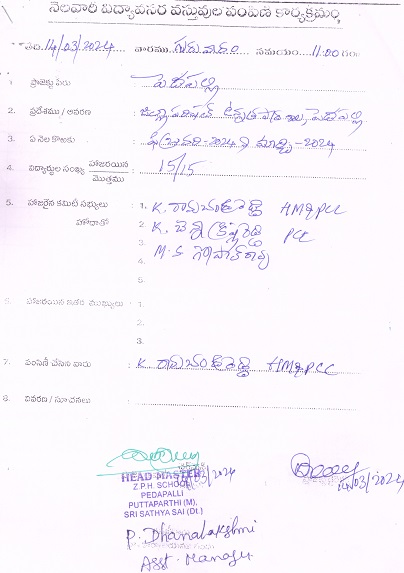 నెలవారి విద్యావసర వస్తువుల పంపిణి కార్యక్రమం
తేది. 14/03/2024 వారము గురువారం సమయం 11:00 గం
1. ప్రాజెక్టు పేరు : పెదపల్లి
2. ప్రదేశము / ఆవరణ : జిల్లా పరిషత్ ఉన్నత పాఠశాల, పెదపల్లి
3. ఏ నెల కొఱకు : ఫిబ్రవరి-2024 మార్చి-2024
4. విద్యార్థుల సంఖ్య హాజరయిన / మొత్తము : 15/15
5. హాజరైన కమిటీ సభ్యులు : 1. K. రామచంద్రారెడ్డి HM & PCC
హోదాతో 2. K. కృష్ణారెడ్డి PCC
3. M.S. గోపాల్
4.
5.
6. హాజరయిన ఇతర ముఖ్యులు : 1.
2.
3.
7. పంపిణీ చేసిన వారు : K. రామచంద్రారెడ్డి HM & PCC
8. వివరణ / సూచనలు :
HEAD MASTER 14/03/2024
Z.P.H. SCHOOL
PEDAPALLI
PUTTAPARTHI (M),
SRI SATHYA SAI (Dt.)
14/03/2024
P. Dhanalakshmi
Asst. Manager